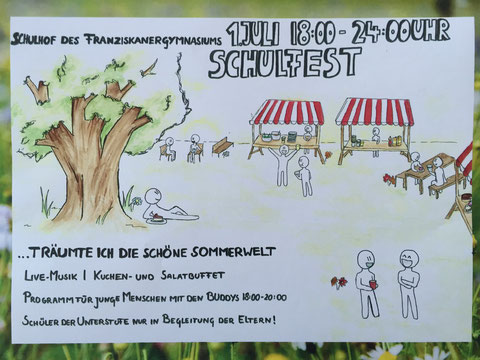 SCHULHOF DES FRANZISKANERGYMNASIUMS
1.JULI 18:00-24:00UHR
SCHULFEST
...TRÄUMTE ICH DIE SCHÖNE SOMMERWELT
LIVE-MUSIK | KUCHEN- UND SALATBUFFET
PROGRAMM FÜR JUNGE MENSCHEN MIT DEN BUDDYS 18:00-20:00
SCHÜLER DER UNTERSTUFE NUR IN BEGLEITUNG DER ELTERN!